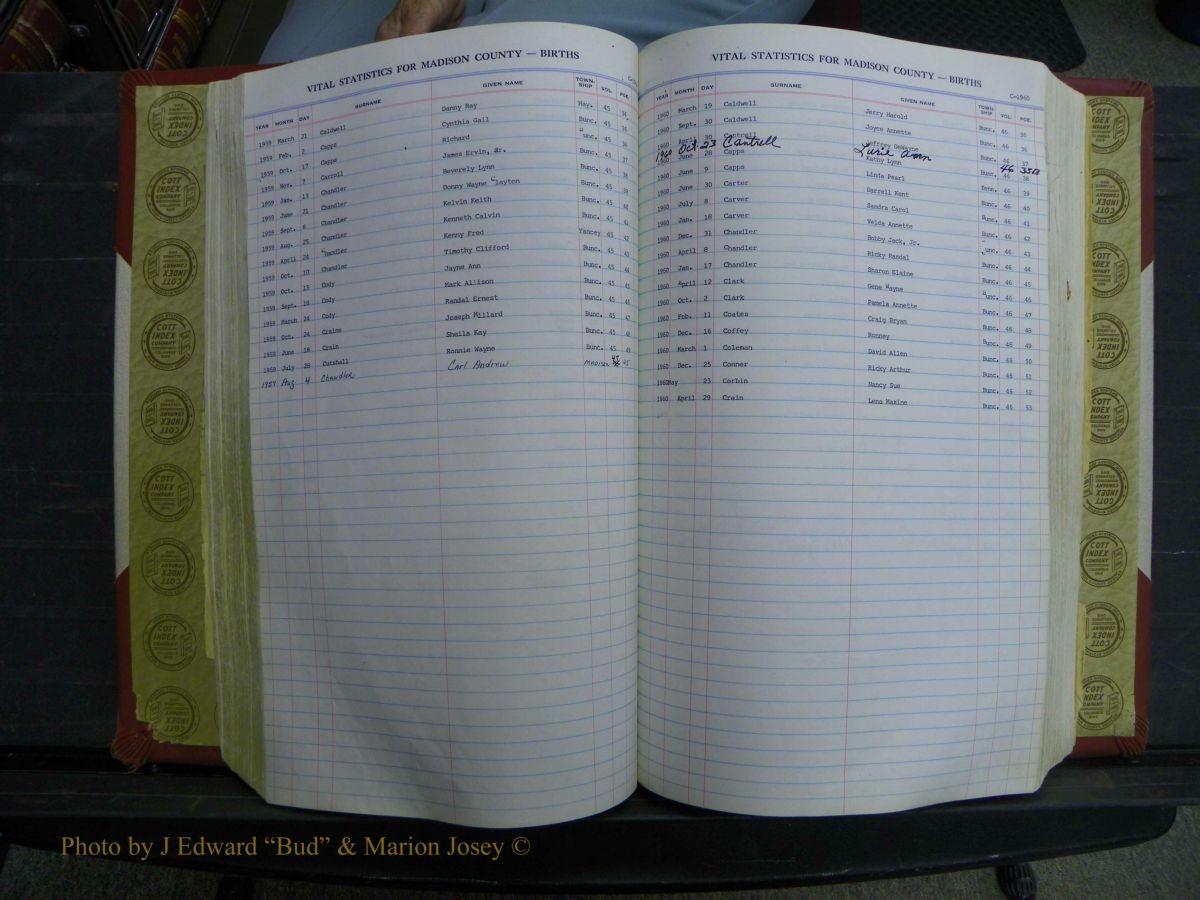 VITAL STATISTICS FOR MADISON COUNTY — BIRTHS
YEAR MONTH DAY SURNAME GIVEN NAME TOWN-SHIP VOL. PGE.
1959 March 21 Caldwell Danny Ray May. 45 34
1959 Feb. 2 Capps Cynthia Gail Bunc. 45 35
1959 Oct. 17 Capps Richard Bunc. 45 36
1959 Nov. 7 Carroll James Ervin, Jr. Bunc. 45 37
1959 Jan. 13 Chandler Beverely Lynn Bunc. 45 38
1959 June 21 Chandler Donny Wayne Clayton Bunc. 45 39
1959 Sept. 6 Chandler Kelvin Keith Bunc. 45 40
1959 Aug. 25 Chandler Kenneth Calvin Bunc. 45 41
1959 April 24 Chandler Kenny Fred Yancey 45 42
1959 Oct. 10 Chandler Timothy Clifford Bunc. 45 43
1959 Oct. 15 Cody Jayne Ann Bunc. 45 44
1959 Sept. 10 Cody Mark Allison Bunc. 45
1959 March 24 Cody Randal Ernest Bunc. 45
1959 Oct. 24 Craine Joseph Millard Bunc. 45 47
1959 June 16 Crain Sheila Kay Bunc. 45 48
1959 July 28 Cutshall Ronnie Wayne Bunc. 45 49
1959 Aug 4 Chandler Carl Andrew Madison 45
VITAL STATISTICS FOR MADISON COUNTY — BIRTHS
C-1960
YEAR MONTH DAY SURNAME GIVEN NAME TOWN-SHIP VOL. PGE.
1960 March 19 Caldwell Jerry Harold Bunc. 46 35
1960 Sept. 30 Caldwell Joyce Annette Bunc. 46 36
1960 April 30 Cantrell Jeffrey DeWayne Bunc. 46 37
1960 Oct. 23 Cantrell Lurie Ann 46 35B
1960 June 28 Capps Kathy Lynn Bunc. 46 38
1960 June 9 Capps Linda Pearl Tenn. 46 39
1960 June 30 Carter Darrell Kent Bunc. 46 40
1960 July 8 Carver Sandra Carol Bunc. 46 41
1960 Jan. 18 Carver Velda Annette Bunc. 46 42
1960 Dec. 31 Chandler Bobby Jack, Jr. Bunc. 46 43
1960 April 8 Chandler Ricky Randal Bunc. 46 44
1960 Jan. 17 Chandler Sharon Elaine Bunc. 46 45
1960 April 12 Clark Gene Wayne Bunc. 46 46
1960 Oct. 2 Clark Pamela Annette Bunc. 46 47
1960 Feb. 11 Coates Craig Bryan Bunc. 46 48
1960 Dec. 16 Coffey Ronney Bunc. 46 49
1960 March 1 Coleman David Allen Bunc. 46 50
1960 Dec. 25 Conner Ricky Arthur Bunc. 46 51
1960May 23 Corbin Nancy Sue Bunc. 46 52
1960 April 29 Crain Lena Maxine Bunc. 46 53
COTT INDEX COMPANY
Photo by J Edward “Bud” & Marion Josey ©